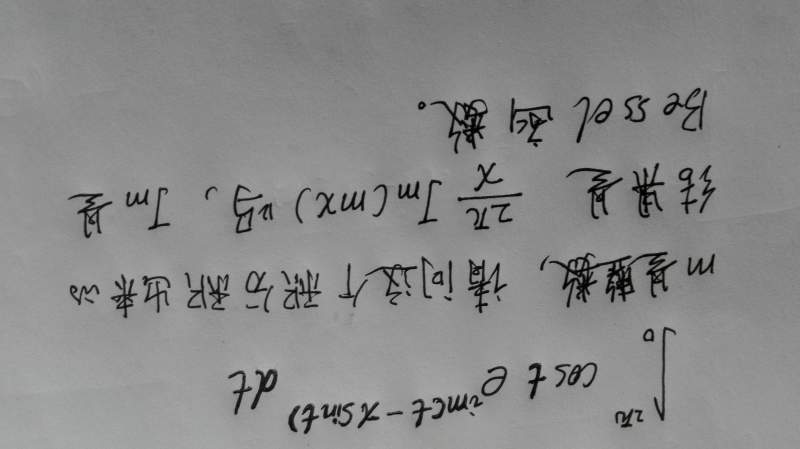 ∫₀^{2π} cos t e^{im(t - x sin t)} dt
m是整数,请问这个积分积出来的
结果是 2π/x Jm(mx) 吗,Jm是
Bessel函数。